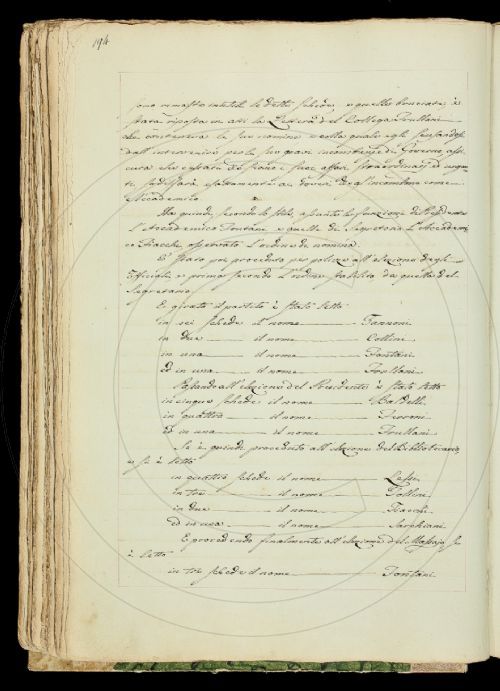 194
sono rimaste inutili le dette schede, e quelle bruciate, è
stata riposta in atti la Lettera del Collega Frullani
che conteneva la sua nomina e colla quale egli scusandosi
dall'intervenire per le sue gravi incombenze di Governo assi
cura che cessata la serie e straordinari ed urgen
ti, soddisfarà esattamente ai doveri che gl'incombono come
Accademico
Ha quindi secondo lo stile, assunto le funzioni di Presidente
l'Accademico Fontani e quelle di Segretario l'Accademi
co Fiacchi osservato l'ordine di nomina.
E' stato poi proceduto per polizze all'elezione degli
Ufficiali, e primo secondo l'ordine stabilito da quella del
Segretario
E girato il partito è stato letto
in sei schede il nome Zannoni
in due il nome Collini
in una il nome Fontani
ed in una il nome Frullani
Passando all'elezione del Presidente è stato letto
in cinque schede il nome Baldelli
in quattro il nome Ferroni
ed in una il nome Frullani
Si è quindi proceduto all'elezione del Bibliotecario
e si è letto
in quattro schede il nome Lessi
in tre il nome Collini
in due il nome Fiacchi
ed in una il nome Sarchiani
E procedendo finalmente all'elezione del Massajo si
è letto
in tre schede il nome Fontani